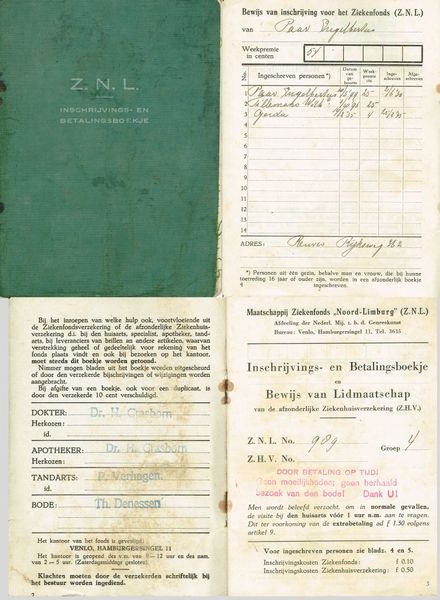 Z. N. L.
INSCHRIJVINGS- EN
BETALINGSBOEKJE
Bewijs van inschrijving voor het Ziekenfonds (Z.N.L.)
van Paar Engelbertus
Weekpremie
in centen
54
No.
Ingeschreven personen*)
Datum
van
ge-
boorte
Week-
premie
cts
Inge-
schreven
Afge-
schreven
1 Paar Engelbertus 25
2 25
3 Gerda 4
4
5
6
7
8
9
10
11
12
13
14
ADRES: Reuver Rijksweg
*) Personen uit één gezin, behalve man en vrouw, die bij hunne
toetreding 16 jaar of ouder zijn, worden in een afzonderlijk boekje
ingeschreven.
4
Bij het inroepen van welke hulp ook, voortvloeiende uit
de Ziekenfondsverzekering of de afzonderlijke Ziekenhuis-
verzekering d.i. bij den huisarts, specialist, apotheker, tand-
arts, bij leveranciers van brillen en andere artikelen, waarvan
verstrekking geheel of gedeeltelijk voor rekening van het
fonds plaats vindt en ook bij bezoeken op het kantoor,
moet steeds dit boekje worden getoond.
Nimmer mogen bladen uit het boekje worden uitgescheurd
of door den verzekerde bijschrijvingen of wijzigingen worden
aangebracht.
Bij afgifte van een boekje, ook voor een duplicaat, is
door den verzekerde 10 cent verschuldigd.
DOKTER: Dr. H. Grasborn
Herkozen:
id.
APOTHEKER: Dr. H. Grasborn
Herkozen:
TANDARTS: P. Verhagen.
id.
BODE: Th. Denessen
Het kantoor van het fonds is gevestigd:
VENLO, HAMBURGERSINGEL 11
Het kantoor is geopend des v.m. van 8—12 uur en des nam.
van 2—5 uur. (Zaterdagsmiddags gesloten).
Klachten moeten door de verzekerden schriftelijk bij
het bestuur worden ingediend.
2
Maatschappij Ziekenfonds „Noord-Limburg” (Z.N.L.)
Afdeeling der Nederl. Mij. t. b. d. Geneeskunst
Bureau: Venlo, Hamburgersingel 11, Tel. 3615
Inschrijvings- en Betalingsboekje
en
Bewijs van Lidmaatschap
van de afzonderlijke Ziekenhuisverzekering (Z.H.V.)
Z. N. L. No. 989 Groep 4
Z. H. V. No.
DOOR BETALING OP TIJD!
Geen moeilijkheden; geen herhaald
bezoek van den bode! Dank U!
Men wordt beleefd verzocht, om in normale gevallen,
de visite bij den huisarts vóór 1 uur n.m. aan te vragen.
Dit ter voorkoming van de extrabetaling ad f 1.50 volgens
artikel 9.
Voor ingeschreven personen zie bladz. 4 en 5.
Inschrijvingskosten Ziekenfonds: f 0.10
Inschrijvingskosten Ziekenhuisverzekering f 0.50
3